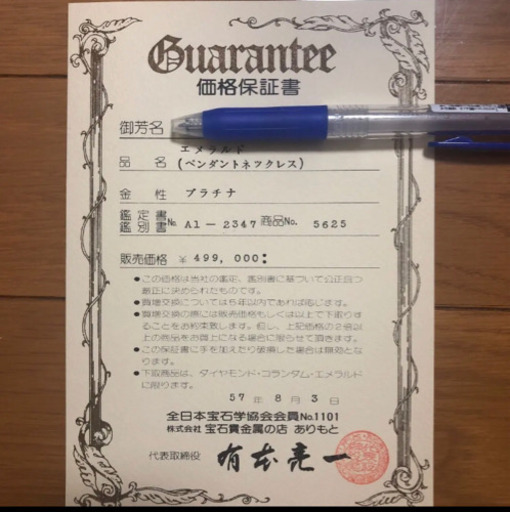 Guarantee
価格保証書
御芳名
エメラルド
品 名 (ペンダントネックレス)
金 性 プラチナ
鑑定書
鑑別書 No. A1-2347 商品No. 5625
販売価格 ¥499,000:
●この価格は当社の鑑定、鑑別書に基づいて公正且つ
厳正に決められたものです。
●買増交換については5年以内であれば応じます。
●買増交換の際には販売価格もしくは以上で下取りす
ることをお約束致します。但し、上記価格の2倍以
上の商品をお買上になる場合に限らせて頂きます。
●この保証書に手を加えたり破損した場合は無効とな
ります。
●下取商品は、ダイヤモンド・コランダム・エメラルド
に限ります。
57年8月3日
全日本宝石学協会会員No.1101
株式会社 宝石貴金属の店 ありもと
代表取締役 有本亮一